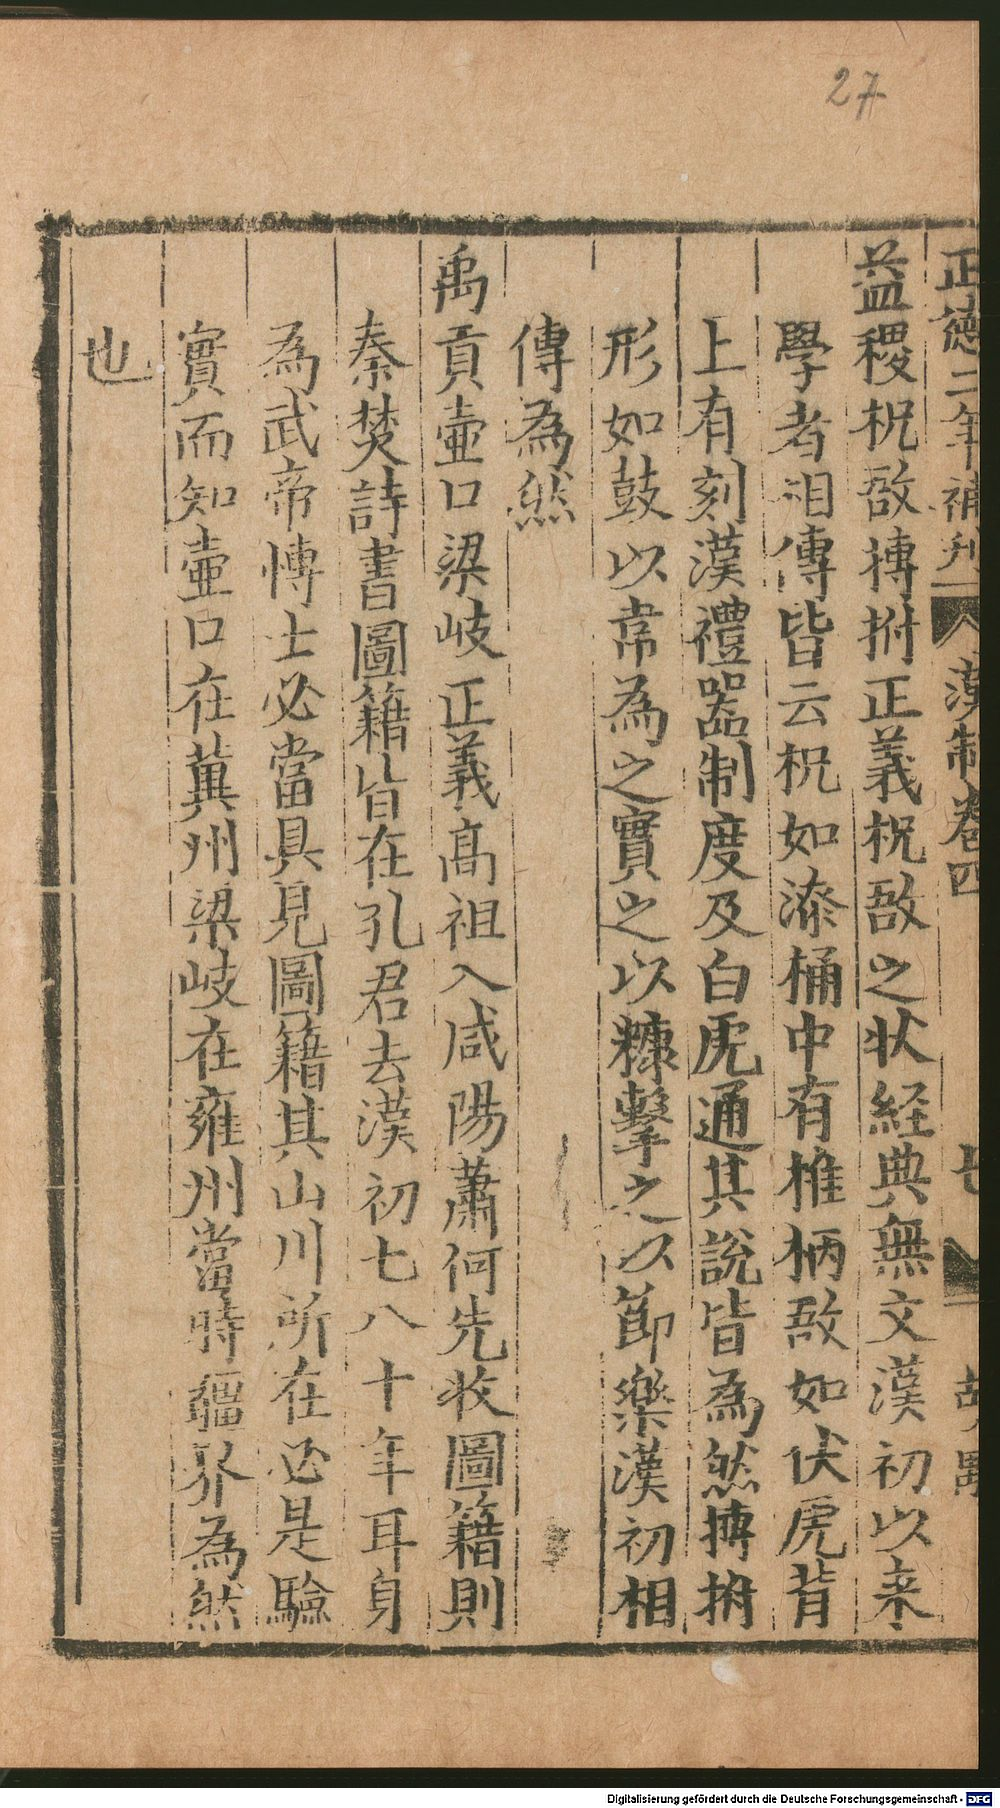 27
正德二年補刊 漢制卷四 七
益稷柷敔搏拊正義柷敔之狀経典無文漢初以来
學者相傳皆云柷如漆桶中有椎柄敔如伏虎背
上有刻漢禮器制度及白虎通其說皆為然搏拊
形如鼓以韋為之實之以糠擊之以節樂漢初相
傳為然
禹貢壷口梁岐正義高祖入咸陽蕭何先收圖籍則
秦焚詩書圖籍皆在孔君去漢初七八十年耳身
為武帝博士必當具見圖籍其山川所在必是驗
實而知壷口在冀州梁岐在雍州當時疆界為然
也
Digitalisierung gefördert durch die Deutsche Forschungsgemeinschaft - DFG